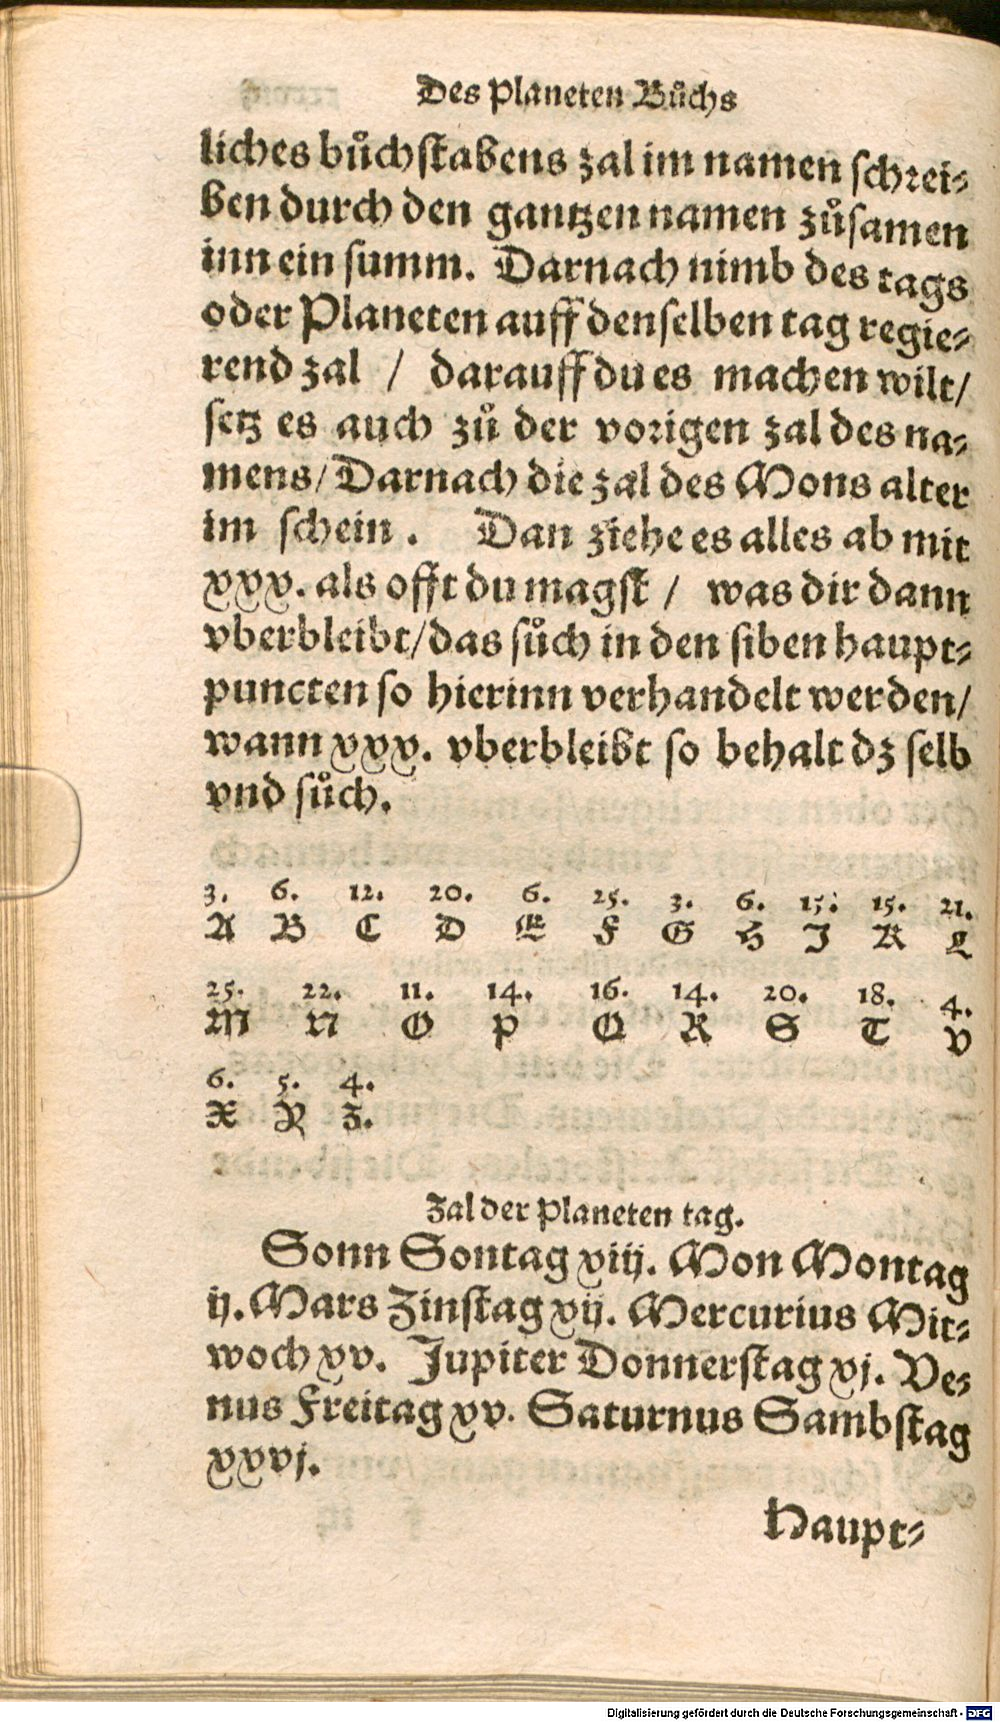 Des Planeten Bůchs
liches bůchstabens zal im namen schrei⸗
ben durch den gantzen namen zůsamen
inn ein summ. Darnach nimb des tags
oder Planeten auff denselben tag regie⸗
rend zal / darauff du es machen wilt/
setz es auch zů der vorigen zal des na⸗
mens/ Darnach die zal des Mons alter
im schein. Dan ziehe es alles ab mit
xxx. als offt du magst / was dir dann
vberbleibt/das sůch in den siben haupt⸗
puncten so hierinn verhandelt werden/
wann xxx. vberbleibt so behalt dz selb
vnd sůch.
3. 6. 12. 20. 6. 25. 3. 6. 15. 15. 21.
A B C D E F G H I K L
25. 22. 11. 14. 16. 14. 20. 18. 4.
M N O P Q R S T V
6. 5. 4.
X Y Z.
Zal der Planeten tag.
Sonn Sontag xiij. Mon Montag
ij. Mars Zinstag xij. Mercurius Mit⸗
woch xv. Jupiter Donnerstag xj. Ve⸗
nus Freitag xv. Saturnus Sambstag
xxvj.
Haupt⸗
Digitalisierung gefördert durch die Deutsche Forschungsgemeinschaft - DFG